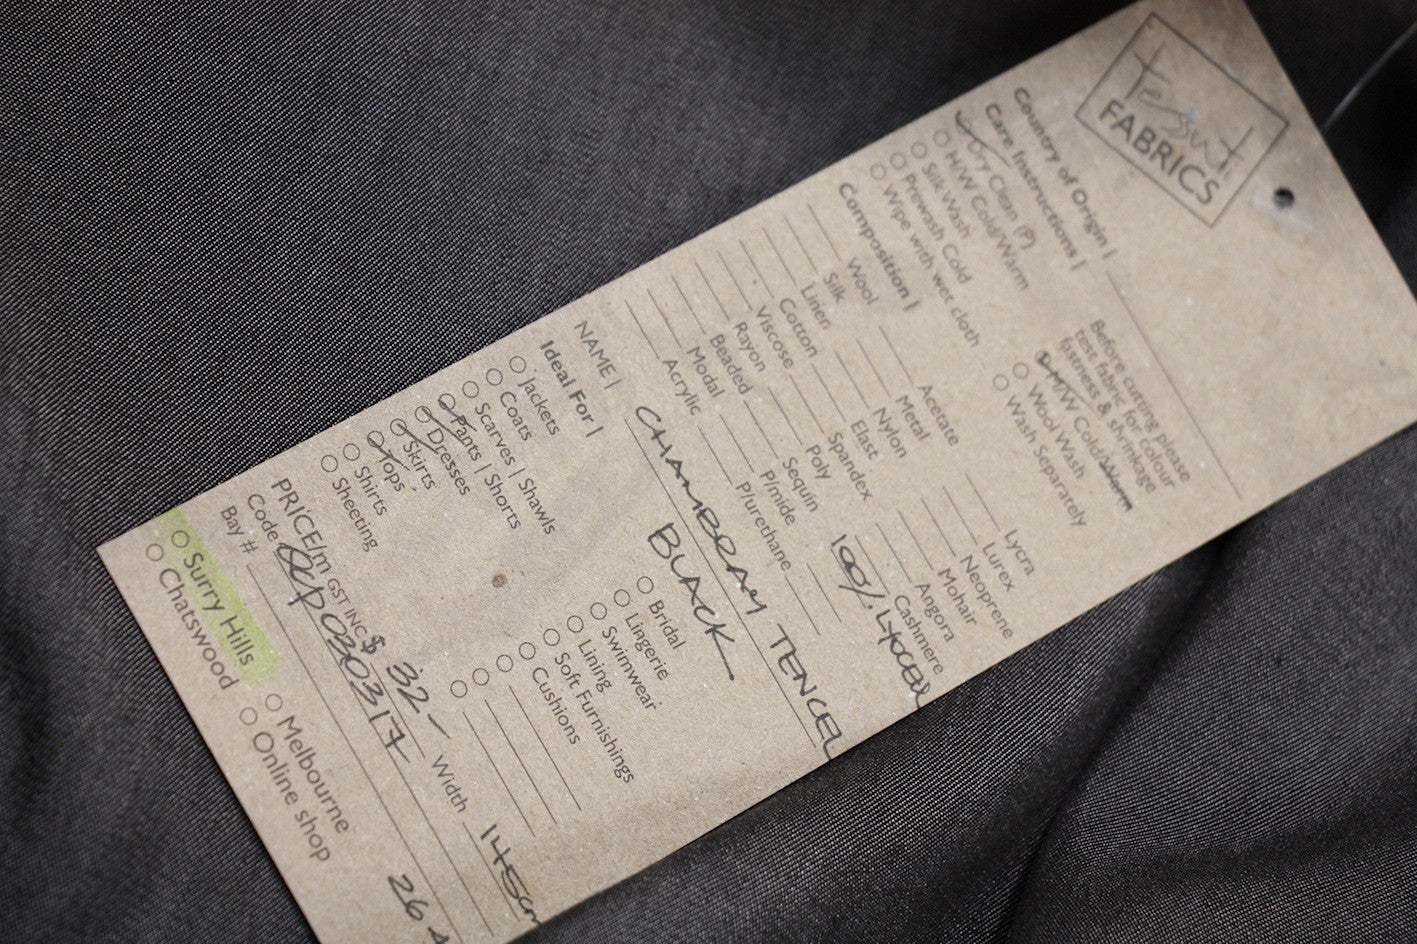 Tessuti
FABRICS
Country of Origin |
Care Instructions |
Dry Clean (P)
H/W Cold/Warm
Silk Wash
Prewash Cold
Wipe with wet cloth
Before cutting please
test fabric for colour
fastness & shrinkage
M/W Cold/Warm
Wool Wash
Wash Separately
Composition |
Wool
Silk
Linen
Cotton
Viscose
Rayon
Beaded
Modal
Acrylic
Acetate
Metal
Nylon
Elast
Spandex
Poly
Sequin
P/mide
P/urethane
Lycra
Lurex
Neoprene
Mohair
Angora
Cashmere
100%. LYOCELL
NAME | CHAMBRAY TENCEL
BLACK
Ideal For |
Jackets
Coats
Scarves | Shawls
Pants | Shorts
Dresses
Skirts
Tops
Shirts
Sheeting
Bridal
Lingerie
Swimwear
Lining
Soft Furnishings
Cushions
PRICE/m GST INC $ 32- Width 145cm
Code 030317
Bay # 26
Surry Hills
Chatswood
Melbourne
Online shop